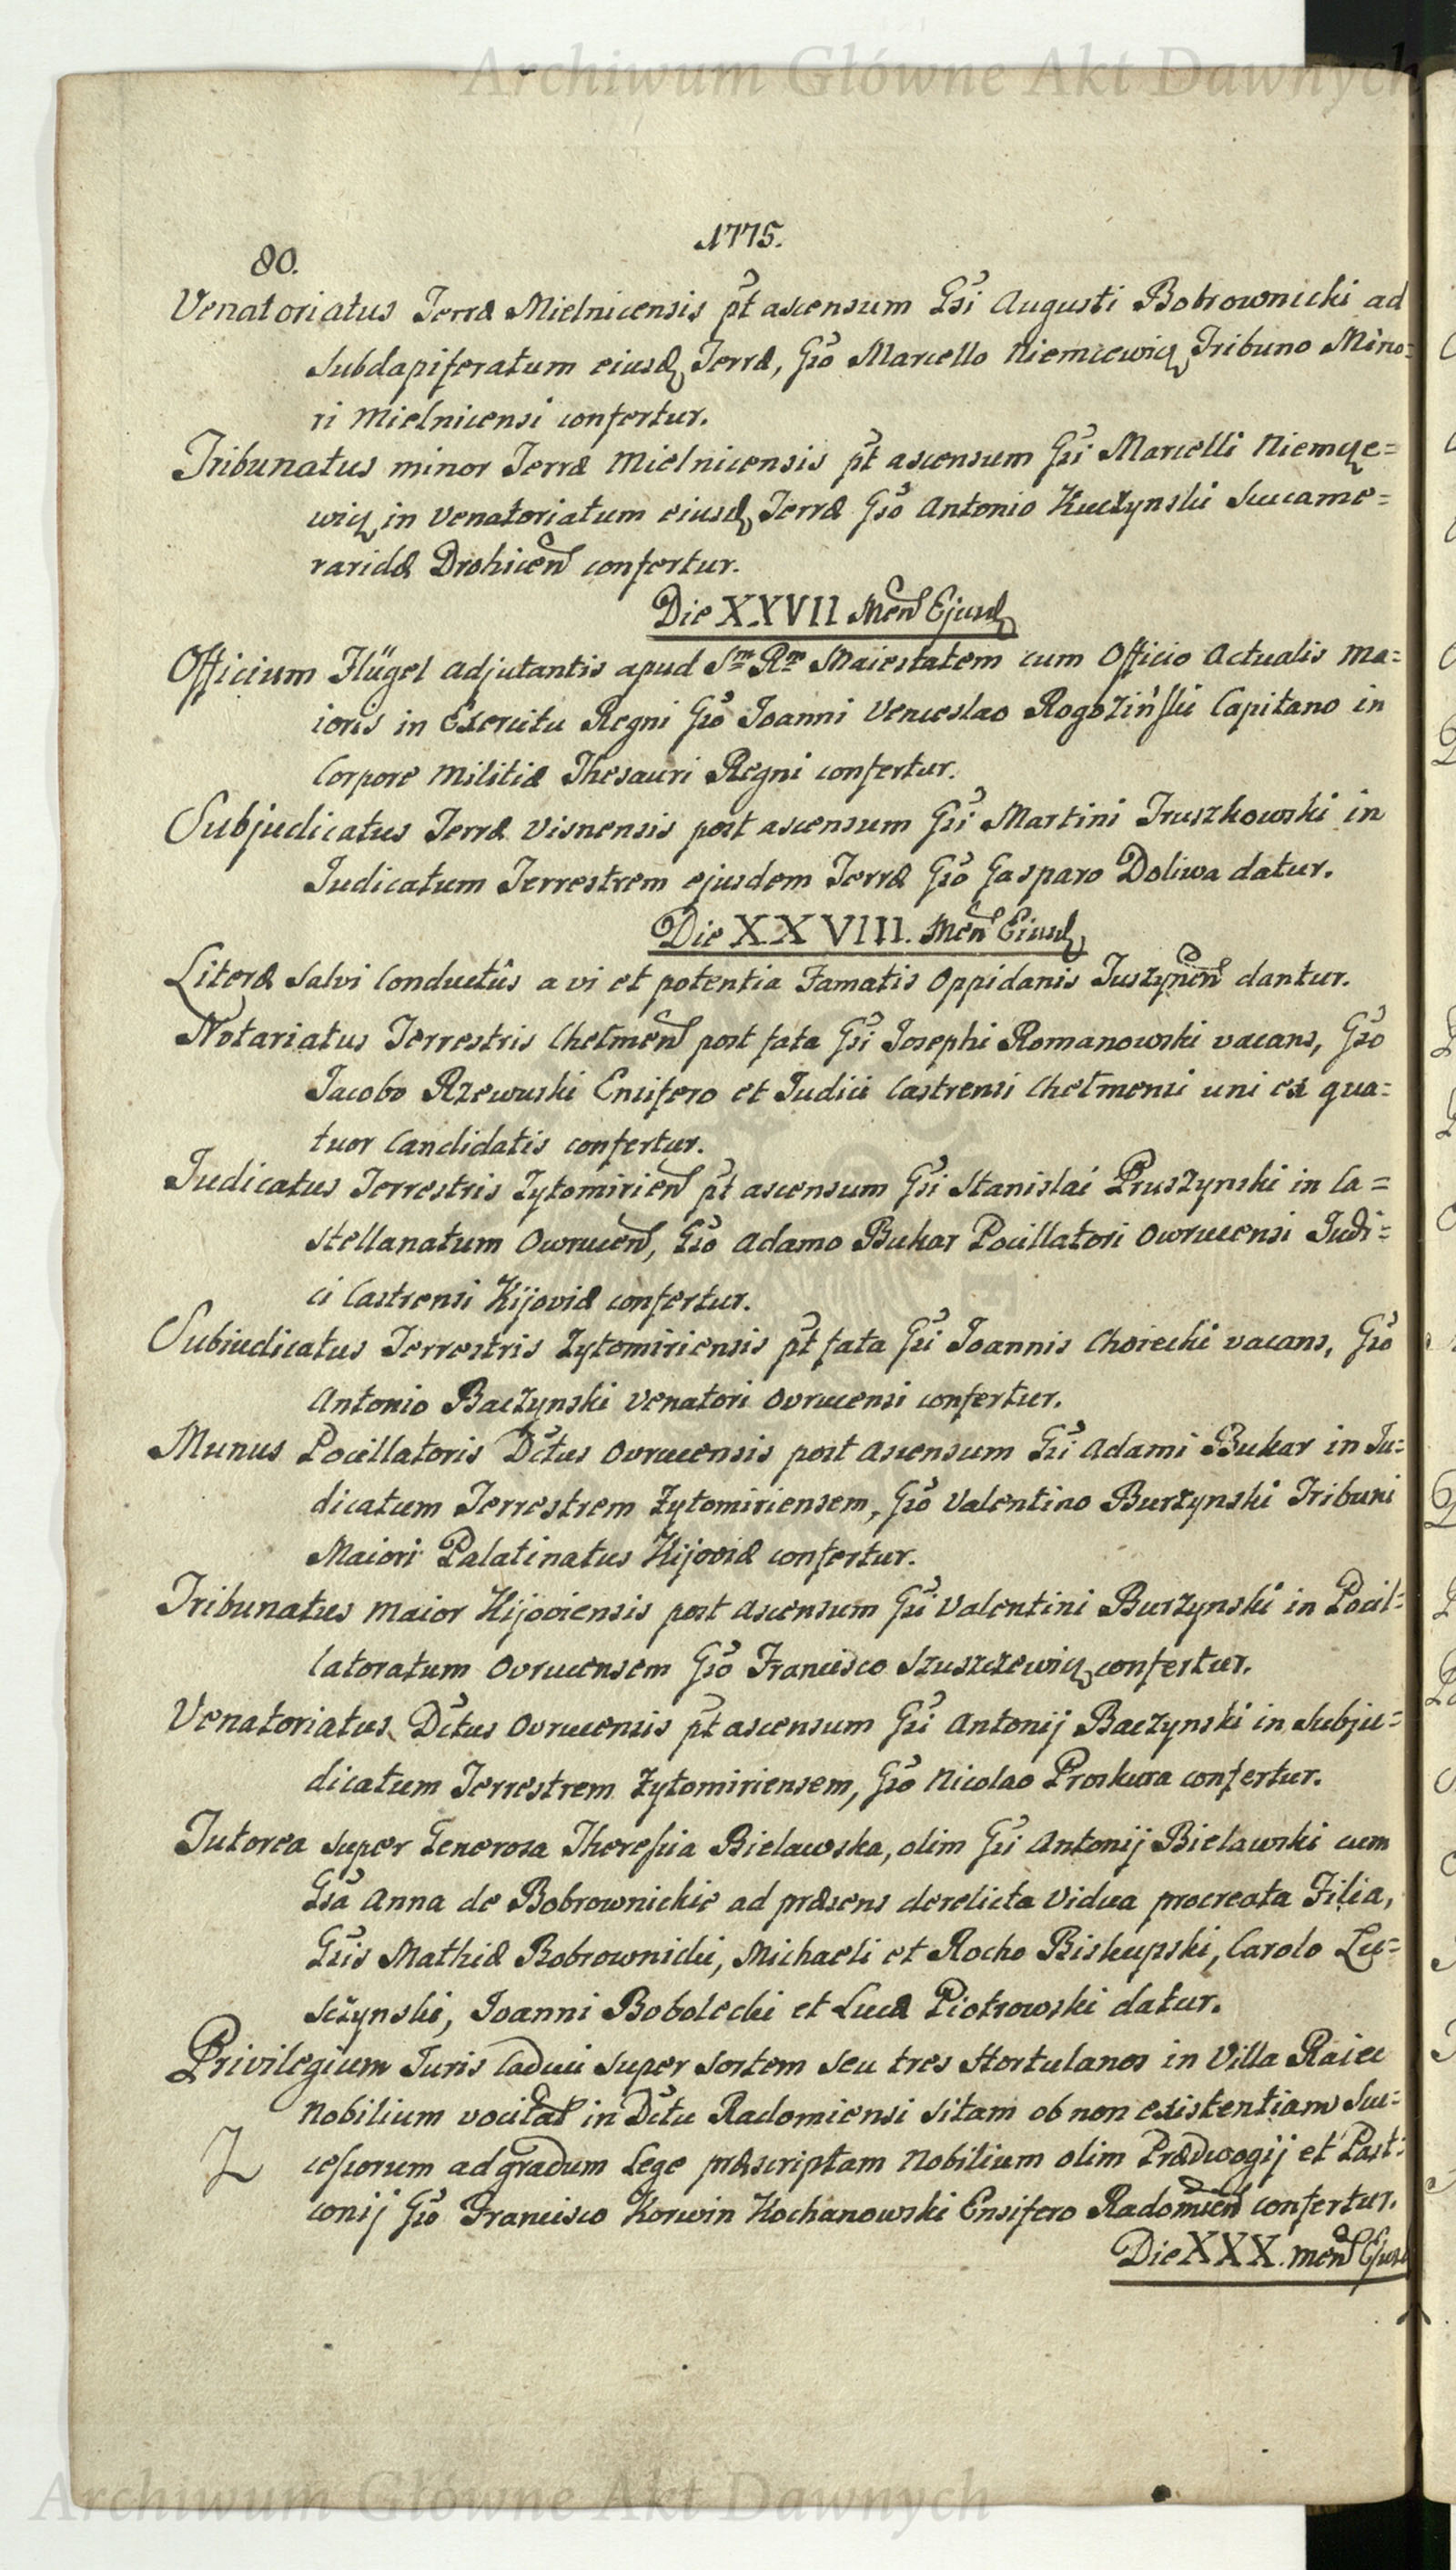 Archiwum Główne Akt Dawnych
1775.
80.
Venatoriatus Terræ Mielnicensis pt ascensum Gsi Augusti Bobrownicki ad
Subdapiferatum eiusd Terræ, Gso Marcello Niemcewicz Tribuno Mino=
ri Mielnicensi confertur.
Tribunatus minor Terræ Mielnicensis pt ascensum Gsi Marcelli Niemcze=
wicz in Venatoriatum eiusd Terræ Gso Antonio Kuczynski Succame=
raridæ Drohicen confertur.
Die XXVII Men Ejusd
Officium Flügel Adjutantis apud Sm Rm Maiestatem cum Officio Actualis Ma=
ioris in Exercitu Regni Gso Joanni Venceslao Rogoziński Capitano in
Corpore Militiæ Thesauri Regni confertur.
Subjudicatus Terræ Visnensis post ascensum Gsi Martini Truszkowski in
Judicatum Terrestrem ejusdem Terræ Gso Gasparo Doliwa datur.
Die XXVIII. Men Eiusd
Literæ Salvi Conductûs a vi et potentia Famatis Oppidanis Tuszynen dantur.
Notariatus Terrestris Chełmen post fata Gsi Josephi Romanowski vacans, Gso
Jacobo Rzewuski Ensifero et Judici Castrensi Chełmensi uni ex qua=
tuor Candidatis confertur.
Judicatus Terrestris Zytomirien pt ascensum Gsi Stanislai Pruszynski in Ca=
stellanatum Owrucen, Gso Adamo Bukar Pocillatori Owrucensi Judi=
ci Castrensi Kijoviæ confertur.
Subiudicatus Terrestris Zytomiriensis pt fata Gsi Joannis Chorecki vacans, Gso
Antonio Baczynski Venatori Ovrucensi confertur.
Munus Pocillatoris Dctus Ovrucensis post ascensum Gsi Adami Bukar in Ju=
dicatum Terrestrem Zytomiriensem, Gso Valentino Burzynski Tribuni
Maiori Palatinatus Kijoviæ confertur.
Tribunatus maior Kijoviensis post ascensum Gsi Valentini Burzynski in Pocil=
latoratum Ovrucensem Gso Francisco Szuszczewicz confertur.
Venatoriatus Dctus Ovrucensis pt ascensum Gsi Antonij Baczynski in Subju=
dicatum Terrestrem Zytomiriensem, Gso Nicolao Proskura confertur.
Tutorea super Generosa Theresia Bielawska, olim Gsi Antonij Bielawski cum
Gsa Anna de Bobrownickie ad præsens derelicta Vidua procreata Filia,
Gsis Mathiæ Bobrownicki, Michaeli et Rocho Biskupski, Carolo Lu=
sczynski, Joanni Bobolecki et Lucæ Piotrowski datur.
Privilegium Juris Caduci super sortem seu tres Hortulanos in Villa Raiec
Nobilium vocitat in Dctu Radomiensi sitam ob non existentiam Suc=
Z cessorum ad gradum Lege præscriptam Nobilium olim Prædwogij et Past=
conij Gso Francisco Korwin Kochanowski Ensifero Radomien confertur.
Die XXX. men Ejusd
Archiwum Główne Akt Dawnych